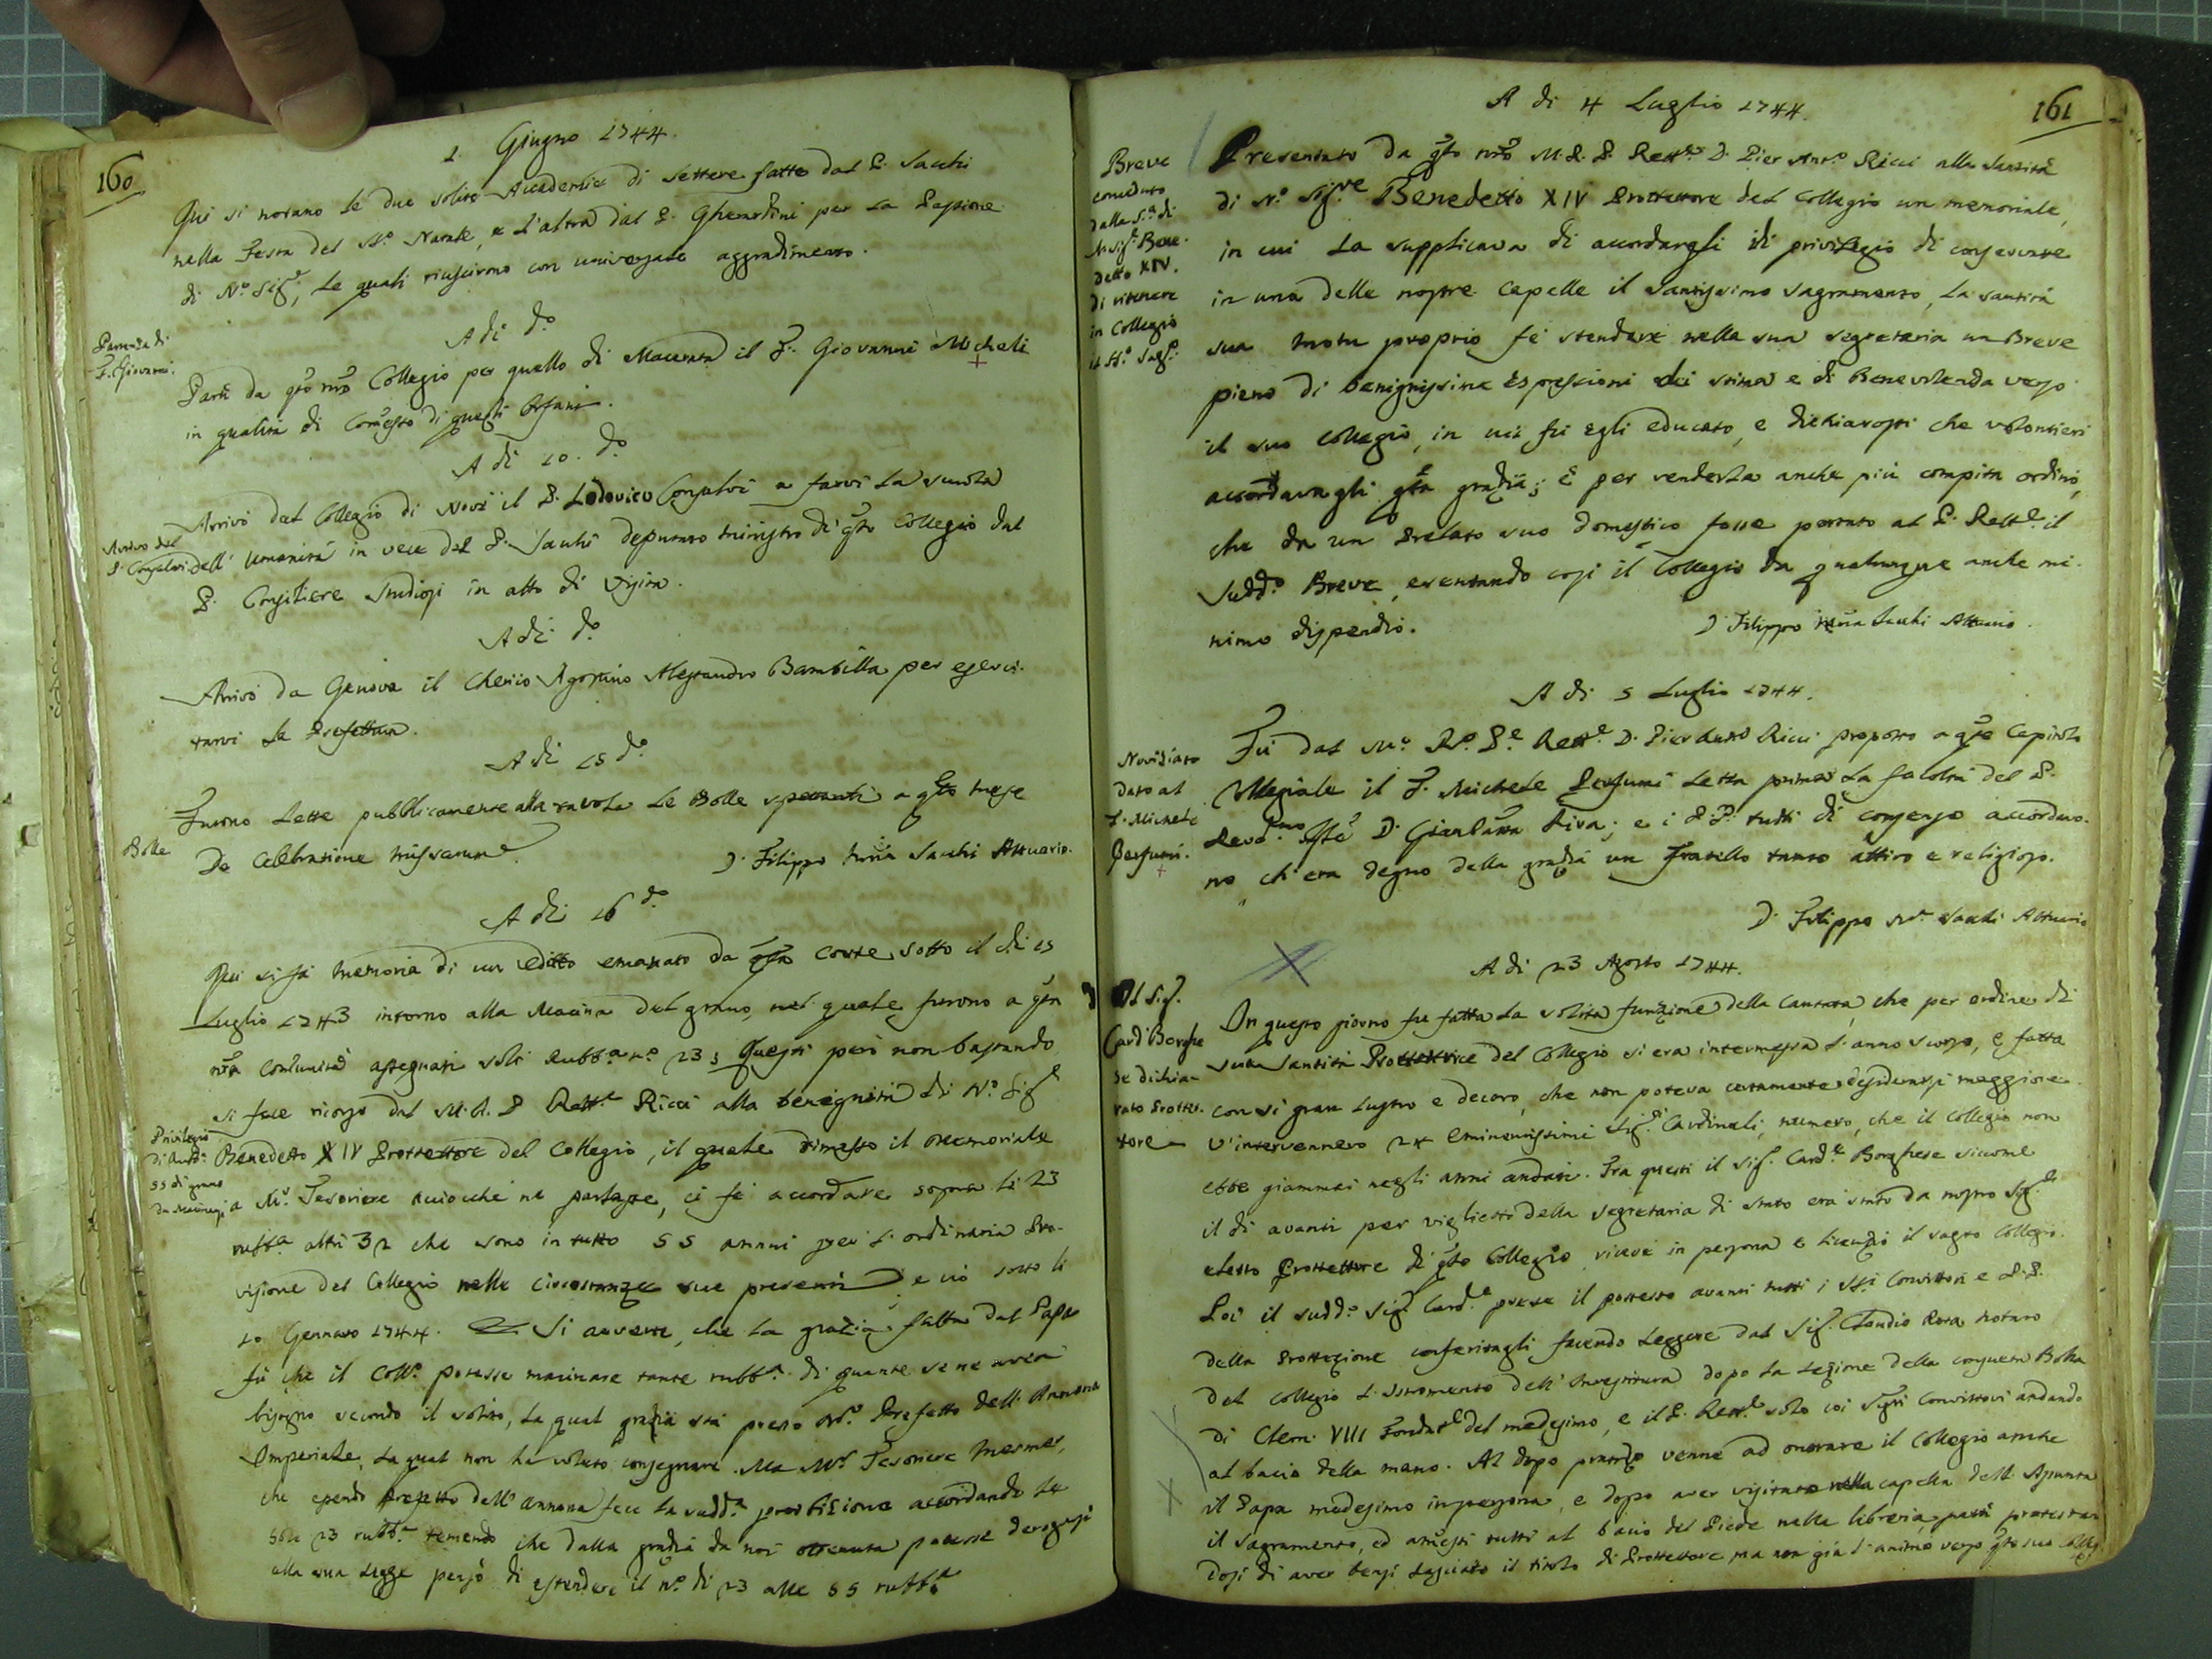 160
1. Giugno 1744.
Qui si notano le due solite Accademie di lettere fatte dal P. Sacchi
nella Festa del Sto. Natale, e l'altra dal P. Gherardini per la Passione
di No. Sige., le quali riuscirono con universale aggradimento.
A di do.
Partenza di
F. Giovanni.
Partì da qto nro Collegio per quello di Macerata il F. Giovanni Micheli
in qualità di Comesso di questi Orfani.
A di 10. do.
Arrivo del
P. Consalvi
Arrivò dal Collegio di Novi il P. Lodovico Consalvi a farvi la scuola
dell' Umanità in vece del P. Sacchi deputato ministro di qto Collegio dal
P. Consigliere Studiosi in atto di Visita.
A di do.
Arrivò da Genova il Cherico Agostino Alessandro Bambilla per eserci-
tarvi la Prefettura.
A di 15 do.
Bolle
Furono lette pubblicamente alla tavola le Bolle spettanti a qto mese
De Celebratione missarum.
D. Filippo Mria Sacchi Attuario.
A di 16 do.
Qui si fà memoria di un editto emanato da qta Corte sotto il di 15
Luglio 1743 intorno alla Macina del grano, nel quale furono a qta
nra Comunità assegnati soli Rubba no. 23; Questi però non bastando
si fece ricorso dal M. R. P Rette Ricci alla benignità di No. Sige
Privilegio
di Rubb:
55 di grano
da macinarsi
Benedetto XIV Prottettore del Collegio, il quale rimesso il memoriale
a Mr. Tesoriere acciocché ne parlasse, ci fè accordare sopra li 23
rubba altri 32 che sono in tutto 55 annui per l'ordinaria Pro-
visione del Collegio nelle circostanze sue presenti, e ciò sotto li
10 Gennaro 1744. Si avverte, che la grazia fatta dal Papa
fù che il Collo. potesse macinare tante rubba. di quante se ne avea
bisogno secondo il solito, la qual grazia stà presso Mr. Prefetto dell' Annona
Imperiale, la qual non ha voluto consegnare. Ma Mr. Tesoriere Mesmer,
che essendo Prefetto dell' Annona fece la sudda. proibizione accordando le
sole 23 rubba. temendo che dalla grazia da noi ottenuta potesse derogarsi
alla sua legge pensò di estendere il no. di 23 alle 55 rubba
161
A di 4 Luglio 1744.
Breve
conceduto
dalla S.tà di
N. Sige. Bene-
detto XIV.
di ritenere
in Collegio
il Sto. Sagro.
Presentato da qto nro M. R. P. Rette. D. Pier Anto. Ricci alla Santità
di No. Sigre Benedetto XIV Prottettore del Collegio un memoriale,
in cui la supplicava di accordargli il privilegio di conservare
in una delle nostre Capelle il Santissimo Sagramento, La santità
sua motu proprio fè stendere nella sua segretaria un Breve
pieno di benignissime Espressioni di stima e di Benevolenza verso
il suo Collegio, in cui fù egli educato, e dichiarossi che volontieri
accordavagli qta grazia; E per renderla anche più compita ordinò,
che da un Prelato suo domestico fosse portato al P. Rette. il
Suddo. Breve, esentando così il Collegio da qualunque anche mi-
nimo dispendio.
D. Filippo Mria Sacchi Attuario.
A di 5 Luglio 1744.
Noviziato
Dato al
F. Michele
Perfumi.
Fù dal Mo. Ro. Pe. Rette. D. Pier Anto Ricci proposto a qto Capitolo
Collegiale il F. Michele Perfumi letta prima la facoltà del P.
Revdmo D. Gianbatta Riva; e i P.P. tutti di consenso accordaro-
no ch'era degno della grazia un Fratello tanto attivo e religioso.
D. Filippo Ma. Sacchi Attuario
A di 23 Agosto 1744.
Il Sig.
Card Borghe
se dichia-
rato Protte-
tore
In questo giorno fu fatta la solita funzione della Cantata, che per ordine di
sua Santità Prottettrice del Collegio si era intermessa l'anno scorso, e fatta
con si gran lustro e decoro, che non poteva certamente desiderarsi maggiore.
V'intervennero 24 Eminentissimi Sigi. Cardinali, numero, che il Collegio non
ebbe giammai negli anni andati. Fra questi il Sig. Carde. Borghese siccome
il di avanti per viglietto della Segretaria di Stato era stato da nostro Sige
eletto Prottettore di qto Collegio ricevè in persona e licenziò il sagro Collegio.
Poi il suddo. Sig. Carde. prese il possesso avanti tutti i Sti Convittori e P.P.
della Protezione conferitagli facendo leggere dal Sig. Claudio Rota notaro
del Collegio l'Istromento dell' Investitura dopo la lezione della consueta Bolla
di Clem. VIII Fondate del medesimo, e il P. Rette solo coi Sigri Convittori andando
al bacio della mano. Al dopo pranzo venne ad onorare il Collegio anche
il Papa medesimo in persona, e dopo aver visitato nella capella dell' Assunta
il Sagramento, ed amessi tutti al bacio del Piede nella libreria, partì protestan
dosi di aver bensì lasciato il titolo di Prottettore ma non già l'animo verso qto suo Colleg.